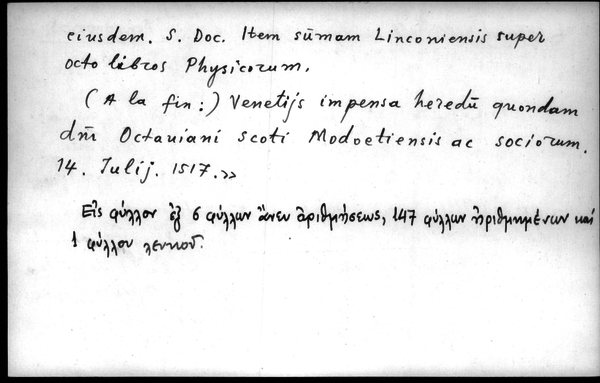 eiusdem. S. Doc. Item sūmam Linconiensis super
octo libros Physicorum.
(A la fin:) Venetijs impensa heredū quondam
dn̄i Octauiani Scoti Modoetiensis ac sociorum.
14. Iulij. 1517.»
Εἰς φύλλον ἐξ 6 φύλλων ἄνευ ἀριθμήσεως, 147 φύλλων ἠριθμημένων καὶ
1 φύλλον λευκοῦ.